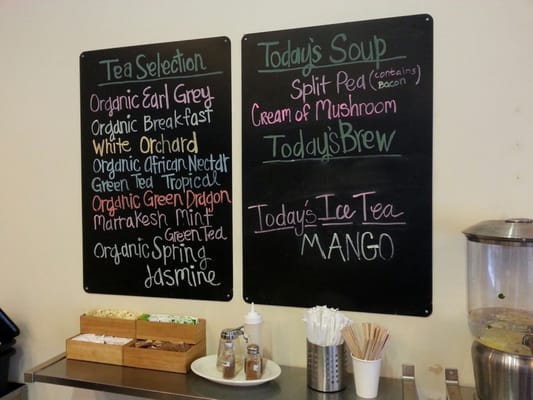 Tea Selection
Organic Earl Grey
Organic Breakfast
White Orchard
Organic African Nectar
Green Tea Tropical
Organic Green Dragon
Marrakesh Mint
Green Tea
Organic Spring
Jasmine
Today's Soup
Split Pea (contains
Bacon)
Cream of Mushroom
Today's Brew
Today's Ice Tea
MANGO